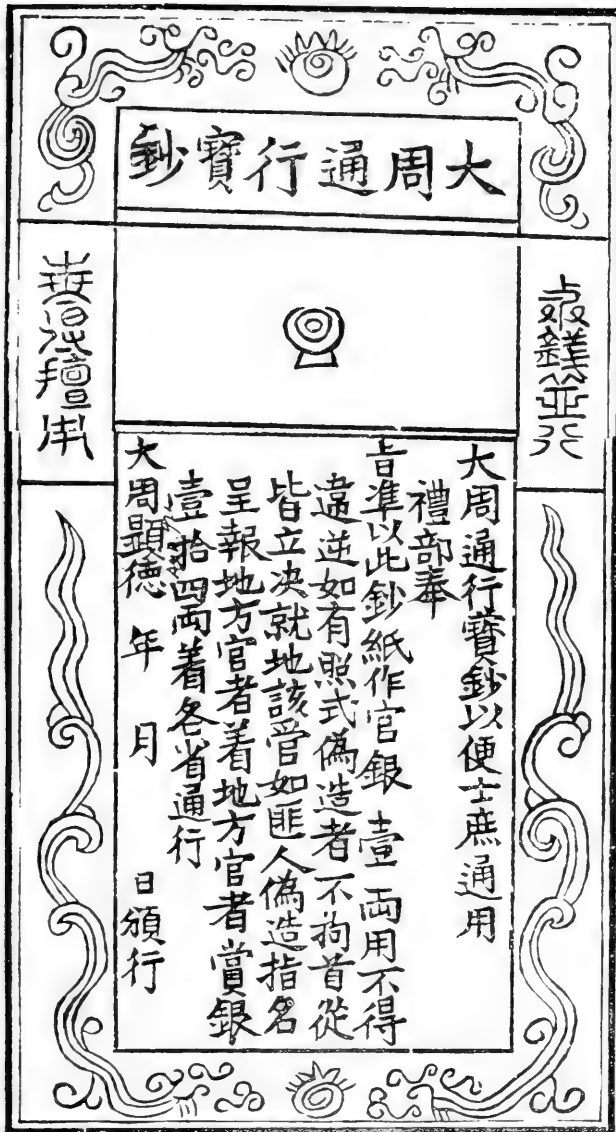 大周通行寶鈔
錢並行
大周通行寶鈔以便士庶通用
禮部奉
旨準以此鈔紙作官銀 壹 両用不得
違逆如有照式偽造者不拘首從
皆立决就地該管如匪人偽造指名
呈報地方官者着地方官者賞銀
壹拾四両着各省通行
大周顯德 年 月 日頒行